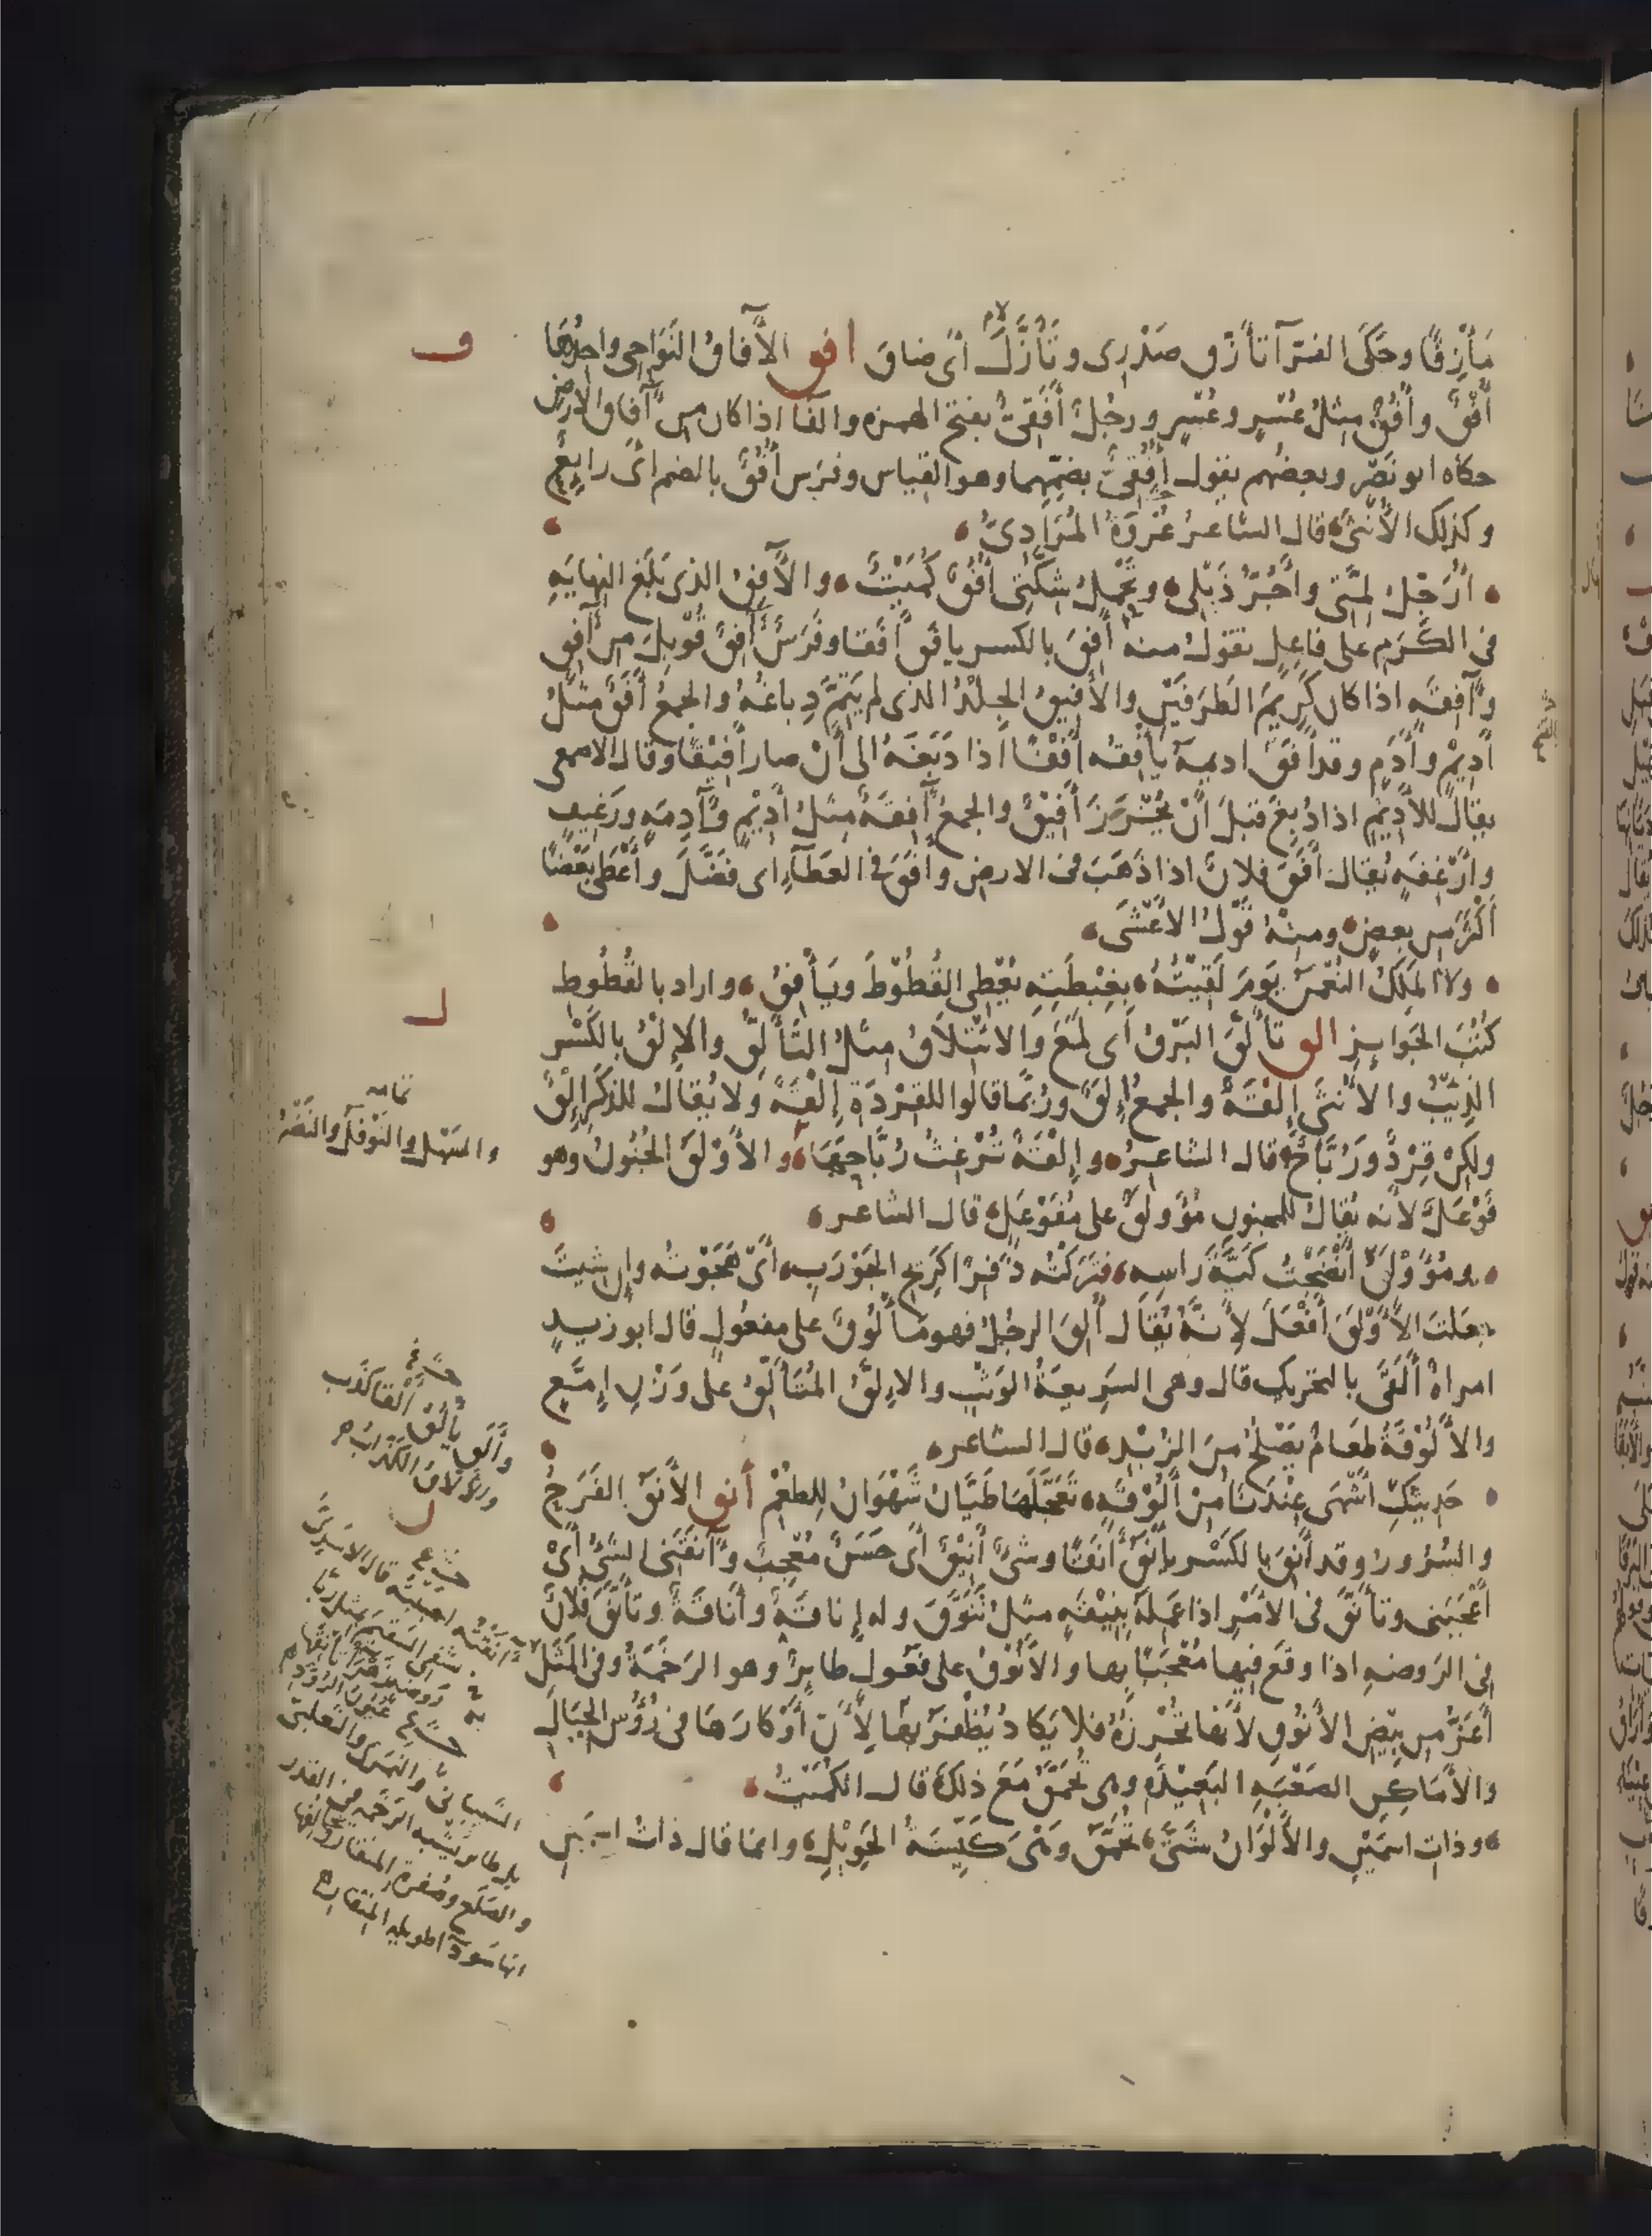 مَأْزِقًا وحَكَى الفرّآ تأزّق صَدْرِى وتَأَزَّلَ اىْ ضاق افق الآفاقُ النَوَاحِى واحِدُهَا
أُفْقٌ وأُفُقٌ مِثلُ عُسْرٍ وعُسُرٍ ورجُلٌ أَفَقِىٌّ بفتح الهمزه والفا اذا كان من آفاق الارض
حكاه ابو نَصْرٍ وبعضُهم يقول أُفُقِىٌّ بضمّهما وهو القياس وفرَس أُفُقٌ بالضم اىْ رايِعٌ
وكذلك الأُنْثَى قال الشاعر عُرْوَةُ المُرَادِىُّ
أُرَجِّلُ لِمَّتى وأَجُرُّ ذَيْلِى وتَحْمِلُ شِكَّتِى أُفُقٌ كُمَيْتُ والآفِقُ الذى بَلَغ النهايَهِ
فى الكَرَم على فاعِل تقول منه أَفِقَ بالكسر يافَقُ أَفَقا وفَرَسٌ آفِقٌ قُوْبِلَ من آفِقٍ
وآفِقَهٍ اذا كان كَرِيْمَ الطَرَفَيْن والأَفِيقُ الجِلْدُ الذى لم يَتِمَّ دِباغُهُ والجمعُ أَفَقٌ مثلُ
أَدِيْمٍ وأَدَمٍ وقد أَفَقَ اديمهُ يَأْفِقُه أَفْقًا اذا دَبَغَهُ الى أَنْ صار أَفِيْقًا وقال الاصمعى
يقال للأَدِيْم اذا دُبِغَ قبلَ أَنْ يُخْرَزَ أَفِيْقٌ والجمعُ آفِقَةٌ مثلُ أَدِيْمٍ وآدِمَهٍ ورَغِيفٍ
وأَرْغِفَهٍ يُقال أَفَقَ فلانٌ اذا ذَهَبَ فى الارض وأَفَقَ فى العَطَآءِ اى فَضَّلَ وأَعْطَى بَعْضًا
أَكْثَرَ من بعضٍ ومنهُ قَوْلُ الأَعْشَى
ولا المَلِكُ النُعْمنُ يَوْمَ لَقِيْتُهُ بغِبْطَتِهِ يُعْطِى القُطُوْطَ ويَأْفِقُ واراد بالقُطُوطِ
كُتُبَ الجَوَايِزِ الق تأَلَّقَ البَرْقُ أَى لَمَعَ والائْتِلاَقُ مثلُ التَأَلُّقِ والإِلْقُ بالكَسْر
الذِيْبُ والأُنْثَى إِلْقَةٌ والجمعُ إِلَقٌ ورُبَّما قالوا للقِرْدَةِ إِلْقَةٌ ولا يُقالُ للذكَر إِلْقٌ
ولكِنْ قِرْدٌ ورُبَّاحٌ قال الشاعر وإِلْقَةٌ تُرْغِثُ رُبَّاحَهَا والأَوْلَقُ الجُنُونُ وهو
فَوْعَلٌ لأنه يُقالُ للمجنون مُؤَولَقٌ على مُفَوْعَلٍ قال الشاعر
ومُؤَوْلَقٍ أَنْضَجْتُ كَيَّةَ رَاسِه فتركْتُه ذَفِرًا كَرِيْحِ الجَوْرَبِ أَىْ هَجَوْتُه وإِن شِيتَ
جعلتَ الأَوْلَقَ أَفْعَلَ لِأَنَّهُ يُقَال أُلِقَ الرجُلُ فهو مَأْلُوْقٌ على مفعُولٍ قال ابو زيدٍ
امراةٌ أَلَقَى بالتحريك قال وهى السَرِيعَةُ الوَثْبِ والإِلَّقُ المُتَأَلِّقُ على وَزْنِ إِمَّعٍ
والأَلُوْقَةُ طعَامٌ يُصْلَحُ مِنَ الزُبْدِ قال الشاعر
حَدِيثُكِ اشْهَى عِنْدَنَا مِنْ أَلُوْقَةٍ تَعَجَّلَهَا طَيَّانُ شَهْوَانُ لِلطُعْمِ أنق الأَنَقُ الفَرَحُ
والسُرُورُ وقد أَنِقَ بالكَسْر يأنَقُ أَنَقًا وشىٌ أَنِيْقٌ أَى حَسَنٌ مُعْجِبٌ وآنَقَنى الشىُ أَىْ
أَعْجَبَنى وتأنَّقَ فى الأَمْرِ اذا عَمِلَهُ بِنِيْقَهٍ مِثلُ تَنَوَّقَ وله إِناقَةٌ وأَناقَةٌ وتأنَّقَ فلانٌ
فى الرَوضهِ اذا وقَع فيها مُعْجَبًا بِها والأَنُوْقُ على فَعُولٍ طايِرٌ وهو الرَخَمَةُ وفى المَثَلِ
أَعَزُّ من بَيْضِ الأَنُوْقِ لأنها تُحْرِزُهُ فلا يَكادُ يُظْفَرُ بها لِأَنَّ أَوْكارَهَا فى رُؤُسِ الجِبَالِ
والأَمَاكِنِ الصَعْبَهِ البَعِيْدَهِ وهى تُحَمَّقُ مَعَ ذلك قال الكُمَيْتُ
وذاتِ اسْمَيْنِ والأَلْوَانُ شَتَّى تُحَمَّقُ وهْىَ كَيِّسَةُ الحَوِيْلِ وانما قال ذاتُ اسمين
ف
ل
تمامه
والسَهْل والنَوْفَل والنَضْرُ
وأَلَق يأْلِقُ أَلْقا كذَب
ل
آنَقْتُه احببتُه
يشفى السقيم
والصَلَع وصُفرة المنقار
انها سَودآ طويله المنقار